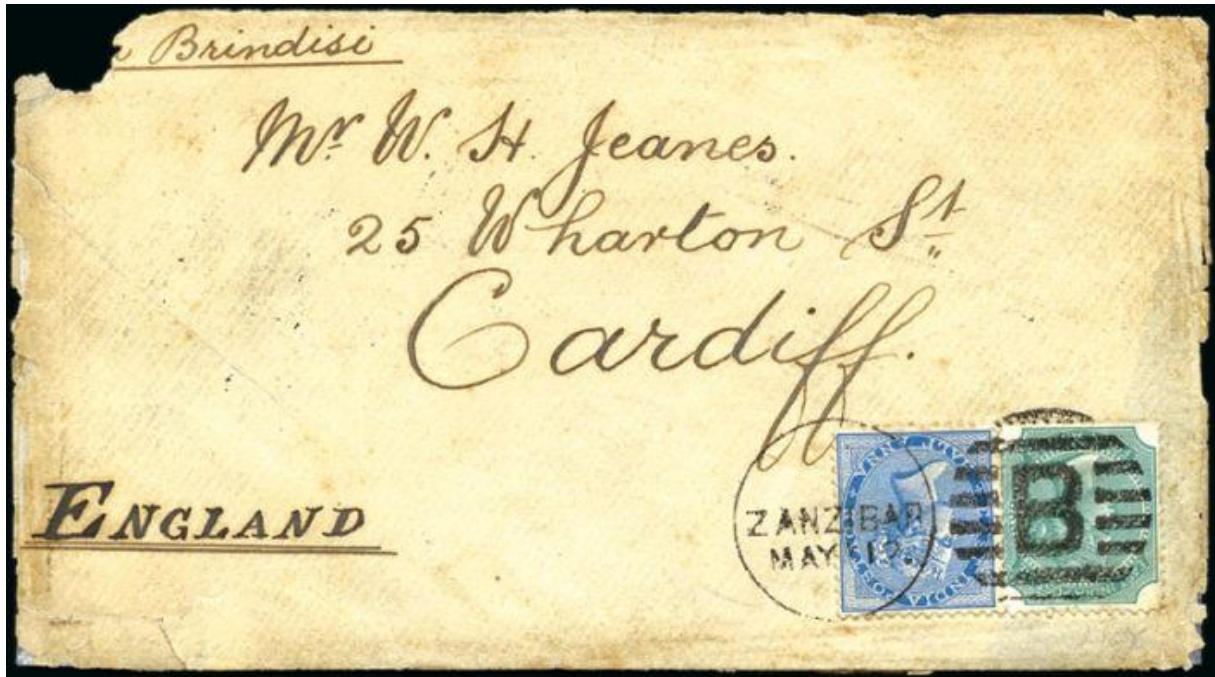 Brindisi
Mr W. H. Jeanes.
25 Wharton St
Cardiff.
ENGLAND
ZANZIBAR
MAY 12.
B